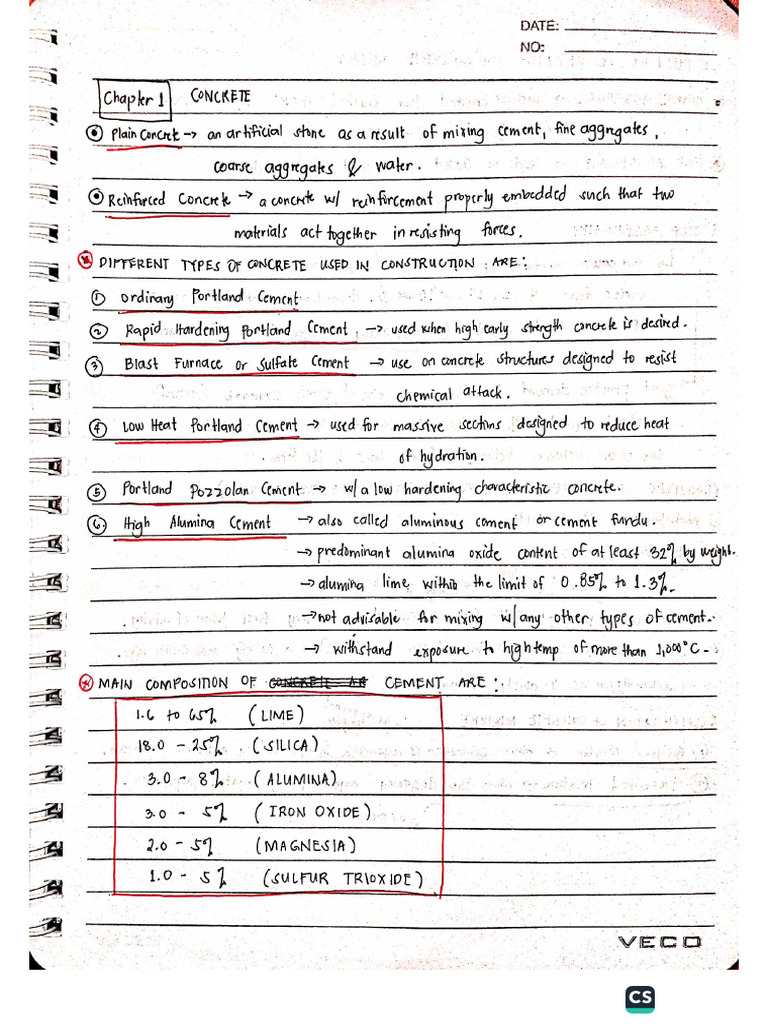 DATE:
NO:
Chapter 1 CONCRETE
Plain Concrete → an artificial stone as a result of mixing cement, fine aggregates,
coarse aggregates & water.
Reinforced Concrete → a concrete w/ reinforcement properly embedded such that two
materials act together in resisting forces.
DIFFERENT TYPES OF CONCRETE USED IN CONSTRUCTION ARE:
① Ordinary Portland Cement
② Rapid Hardening Portland Cement → used when high early strength concrete is desired.
③ Blast Furnace or Sulfate Cement → use on concrete structures designed to resist
chemical attack.
④ Low Heat Portland Cement → used for massive sections designed to reduce heat
of hydration.
⑤ Portland Pozzolan Cement → w/ a low hardening characteristic concrete.
⑥ High Alumina Cement → also called aluminous cement or cement fundu.
→ predominant alumina oxide content of at least 32% by weight.
→ alumina lime within the limit of 0.85% to 1.3%.
→ not advisable for mixing w/ any other types of cement.
→ withstand exposure to high temp of more than 1,000°C.
MAIN COMPOSITION OF CEMENT ARE:
1.6 to 65% (LIME)
18.0 - 25% (SILICA)
3.0 - 8% (ALUMINA)
3.0 - 5% (IRON OXIDE)
2.0 - 5% (MAGNESIA)
1.0 - 5% (SULFUR TRIOXIDE)
VECO
CS